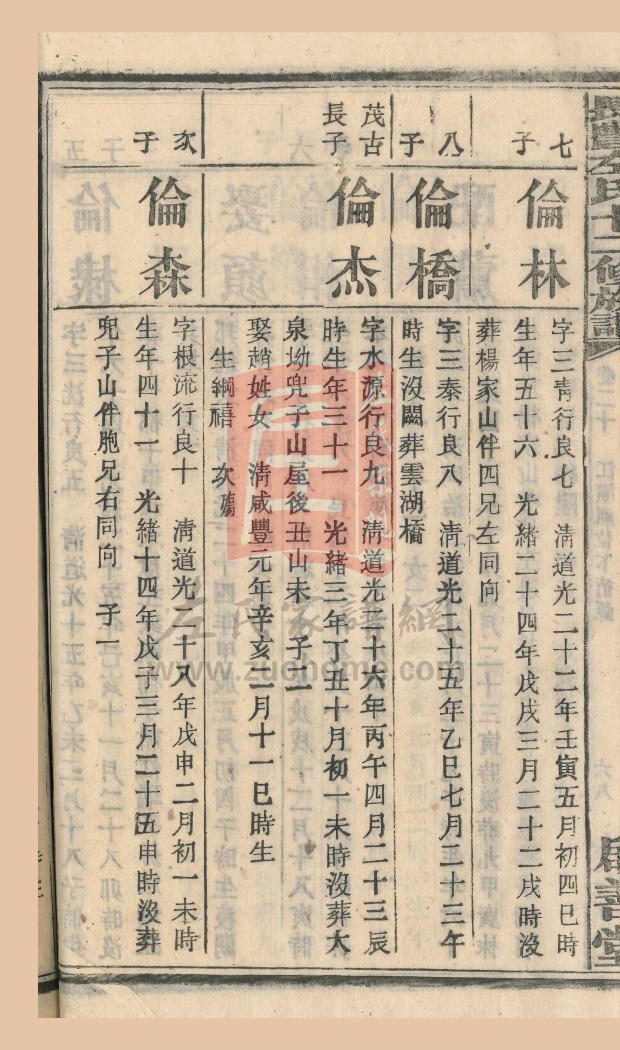 長豐左氏十二修族譜
七子
倫林
字三青行良七 清道光二十二年壬寅五月初四巳時
生年五十六 光緒二十四年戊戌三月二十二戌時沒
葬楊家山伴四兄左同向
八子
倫橋
字三泰行良八 清道光二十五年乙巳七月二十三午
時生沒闕葬雲湖橋
茂古長子
倫杰
字水源行良九 清道光二十六年丙午四月二十三辰
時生年三十一 光緒三年丁丑十月初一未時沒葬大
泉坳兜子山屋後丑山未 子二
娶趙姓女 清咸豐元年辛亥二月十一巳時生
生綱禧 次殤
次子
倫森
字根流行良十 清道光二十八年戊申二月初一未時
生年四十一 光緒十四年戊子三月二十五申時沒葬
兜子山伴胞兄右同向 子一
左氏家譜網
www.zuohome.com